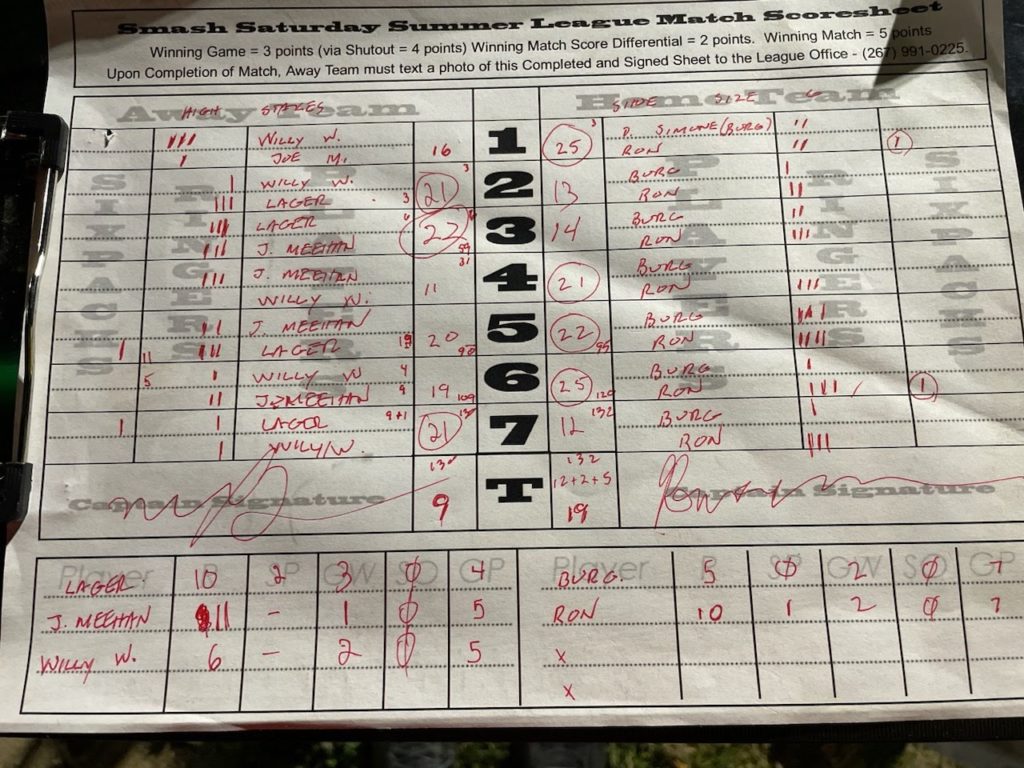 Smash Saturday Summer League Match Scoresheet
Winning Game = 3 points (via Shutout = 4 points) Winning Match Score Differential = 2 points. Winning Match = 5 points
Upon Completion of Match, Away Team must text a photo of this Completed and Signed Sheet to the League Office - (267) 991-0225.
Away Team HIGH STAKES
Home Team SIDE SIZE
SIXPACKS RINGERS PLAYERS
PLAYERS RINGERS SIXPACKS
WILLY W. 16 1 25 3 P. SIMONE (BURG) 1
JOE M. RON
WILLY W. 21 3 2 13 BURG
LAGER 3 RON
LAGER 22 3 14 BURG
J. MEEHAN RON
J. MEEHAN 11 4 21 BURG
WILLY W. RON
J. MEEHAN 20 5 22 95 BURG
LAGER 90 RON
11 WILLY W 4 19 109 6 25 120 BURG 1
5 J. MEEHAN 9 RON
LAGER 9+1 21 130 7 12 132 BURG
WILLY W. RON
130 132
Captain Signature 9 T 12+2+5 Captain Signature
19
Player R SP GW SO GP Player R SP GW SO GP
LAGER 10 2 3 0 4 BURG. 5 0 2 0 7
J. MEEHAN 11 - 1 0 5 RON 10 1 2 0 7
WILLY W. 6 - 2 0 5 X
X